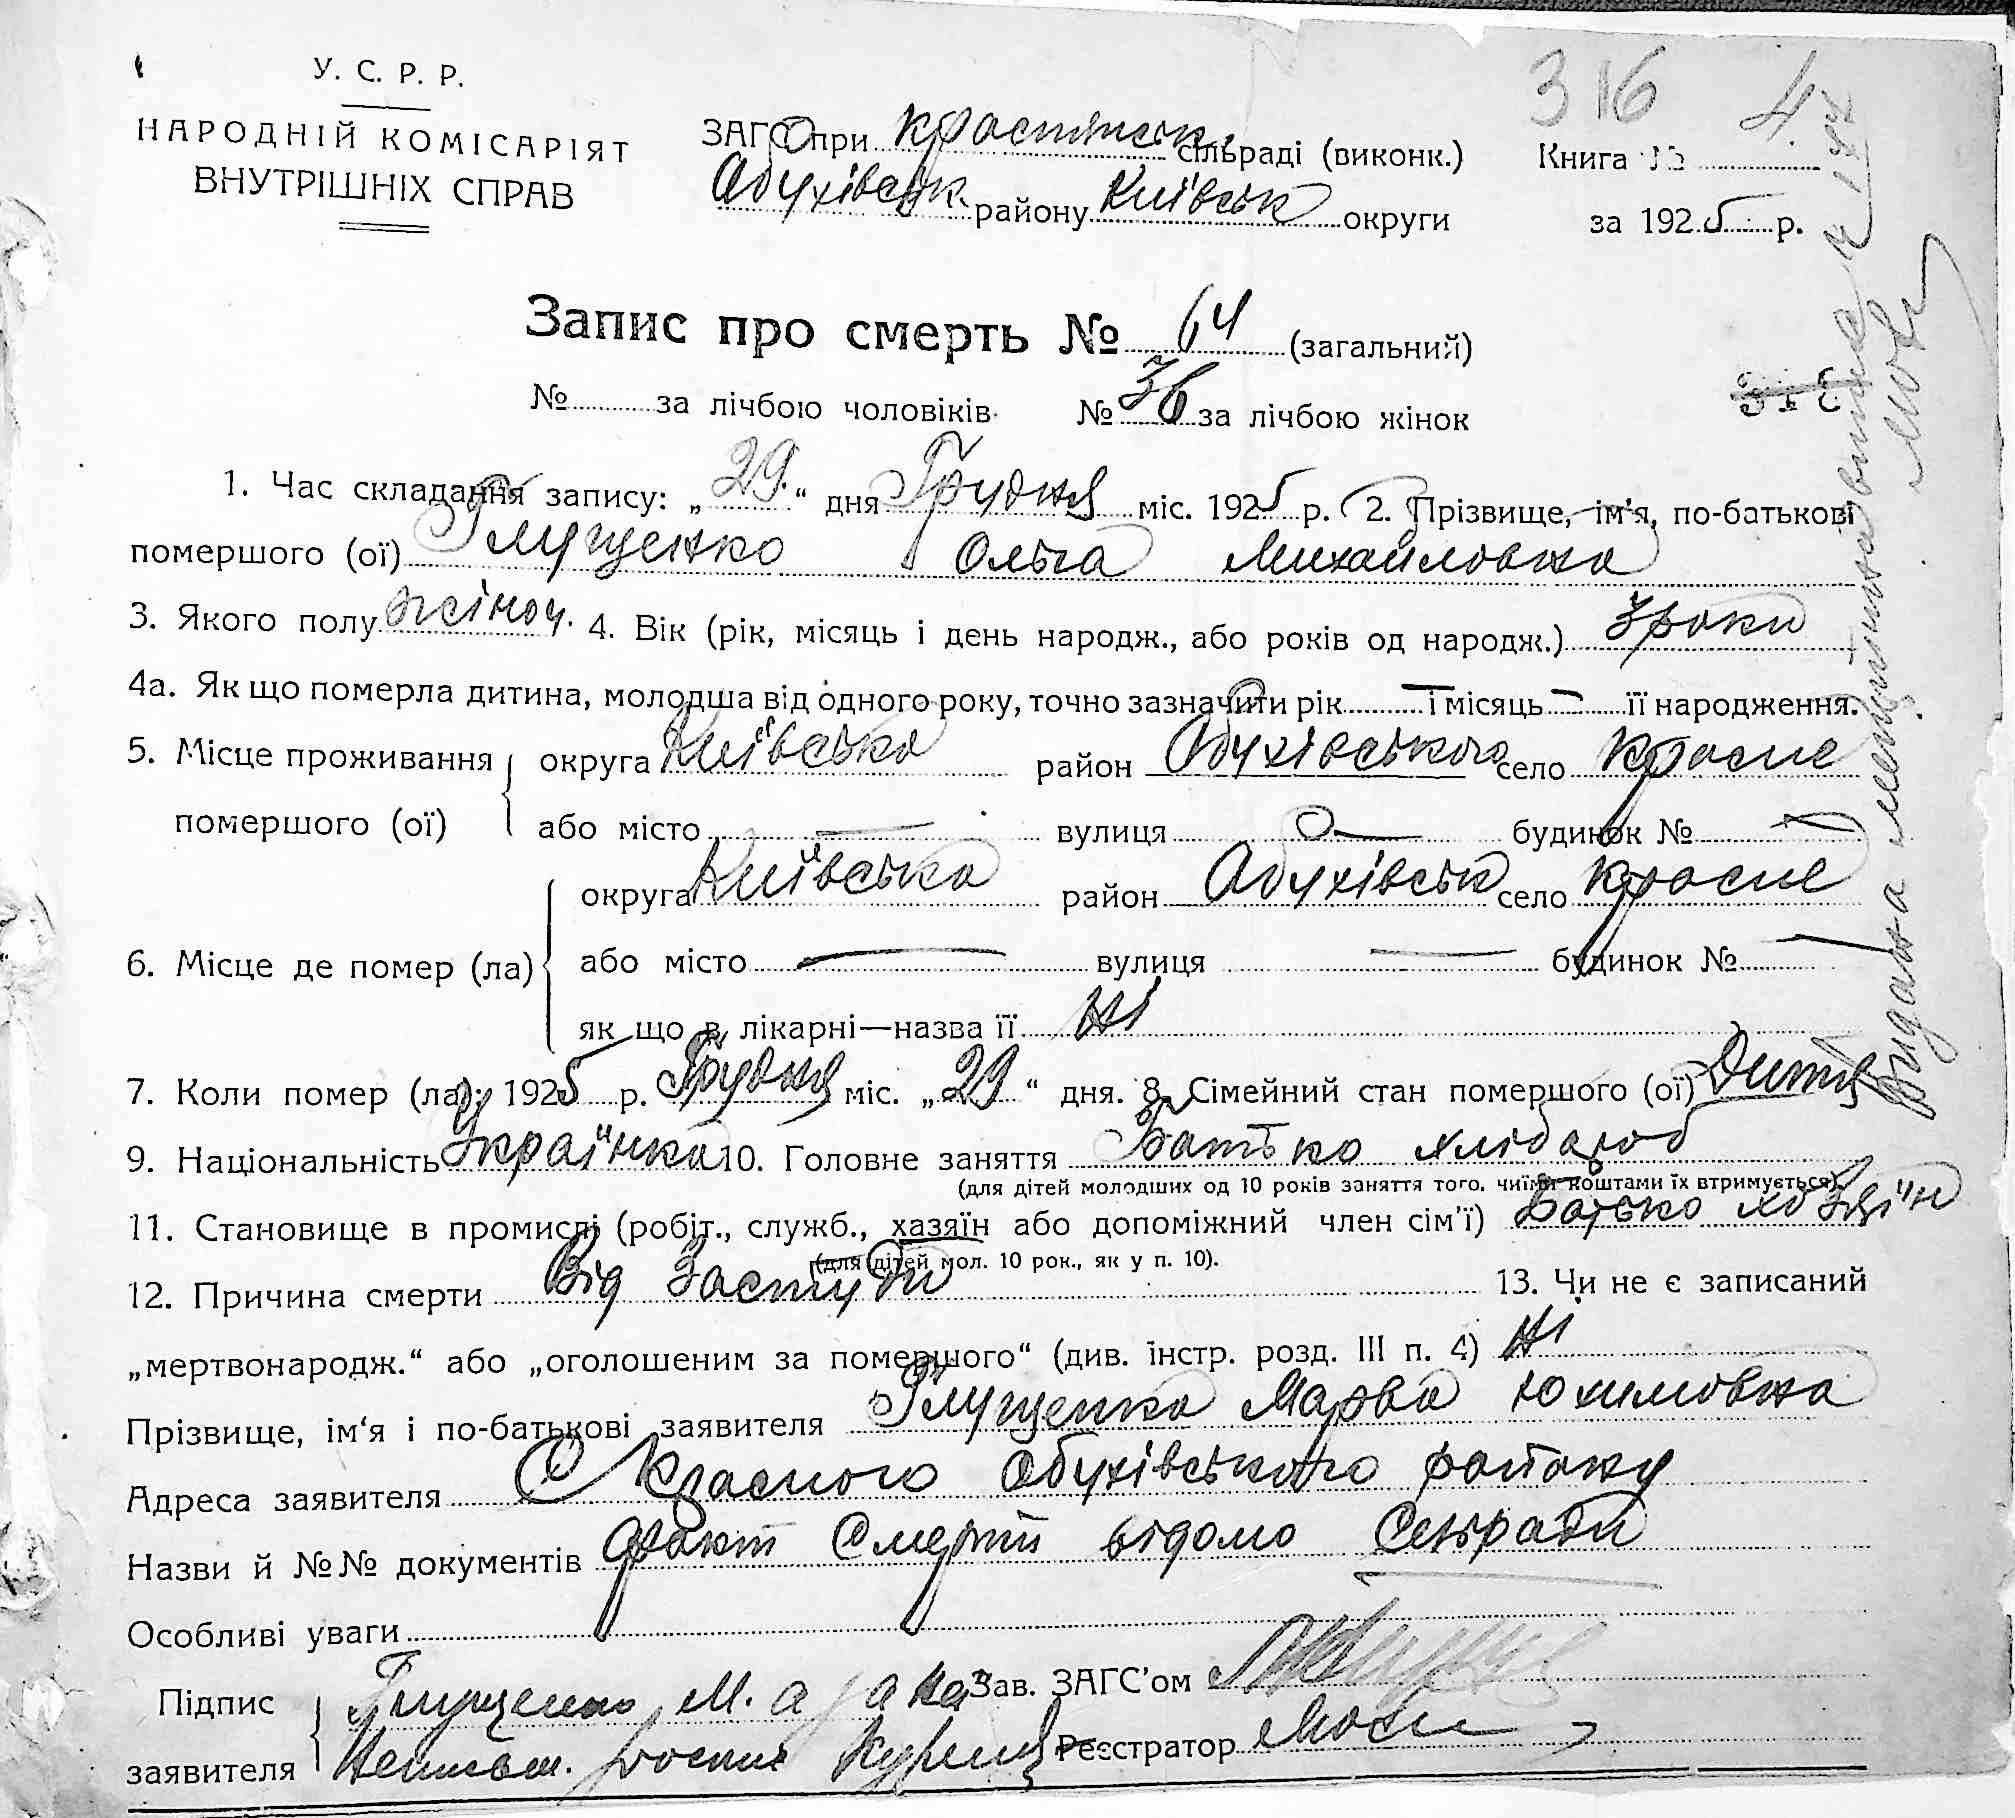 316 4.
У. С. Р. Р.
НАРОДНІЙ КОМІСАРІЯТ
ВНУТРІШНІХ СПРАВ
ЗАГС при Краснянськ. сільраді (виконк.) Книга №
Обухівськ. району Київськ округи за 1925 р.
Запис про смерть № 64 (загальний)
№ за лічбою чоловіків № 36 за лічбою жінок
318
1. Час складання запису: „29.“ дня Грудня міс. 1925 р. 2. Прізвище, ім'я, по-батькові
помершого (ої) Глущенко Ольга Михайловна
3. Якого полу жіноч. 4. Вік (рік, місяць і день народж., або років од народж.) 3 роки
4а. Як що померла дитина, молодша від одного року, точно зазначити рік — і місяць — її народження.
5. Місце проживання округа Київська район Обухівського село Красне
помершого (ої) або місто — вулиця — будинок № —
округа Київська район Обухівськ село Красне
6. Місце де помер (ла) або місто — вулиця — будинок № —
як що в лікарні—назва її Ні
7. Коли помер (ла) 1925 р. Грудня міс. „29“ дня. 8. Сімейний стан помершого (ої) Дитя
9. Національність Українка 10. Головне заняття Батько хлібороб
(для дітей молодших од 10 років заняття того, чиїми коштами їх втримується).
11. Становище в промислі (робіт., служб., хазяїн або допоміжний член сім'ї) Батько хозяїн
(для дітей мол. 10 рок., як у п. 10).
12. Причина смерти Від Застуди 13. Чи не є записаний
„мертвонародж.“ або „оголошеним за помершого“ (див. інстр. розд. III п. 4) Ні
Прізвище, ім‘я і по-батькові заявителя Глущенко Марва Юхимовна
Адреса заявителя С Красного Обухівського району
Назви й №№ документів Факт Смерти відомо Сельради
Особливі уваги
Підпис Глущенко М. Зав. ЗАГС’ом
заявителя Реєстратор
Видана